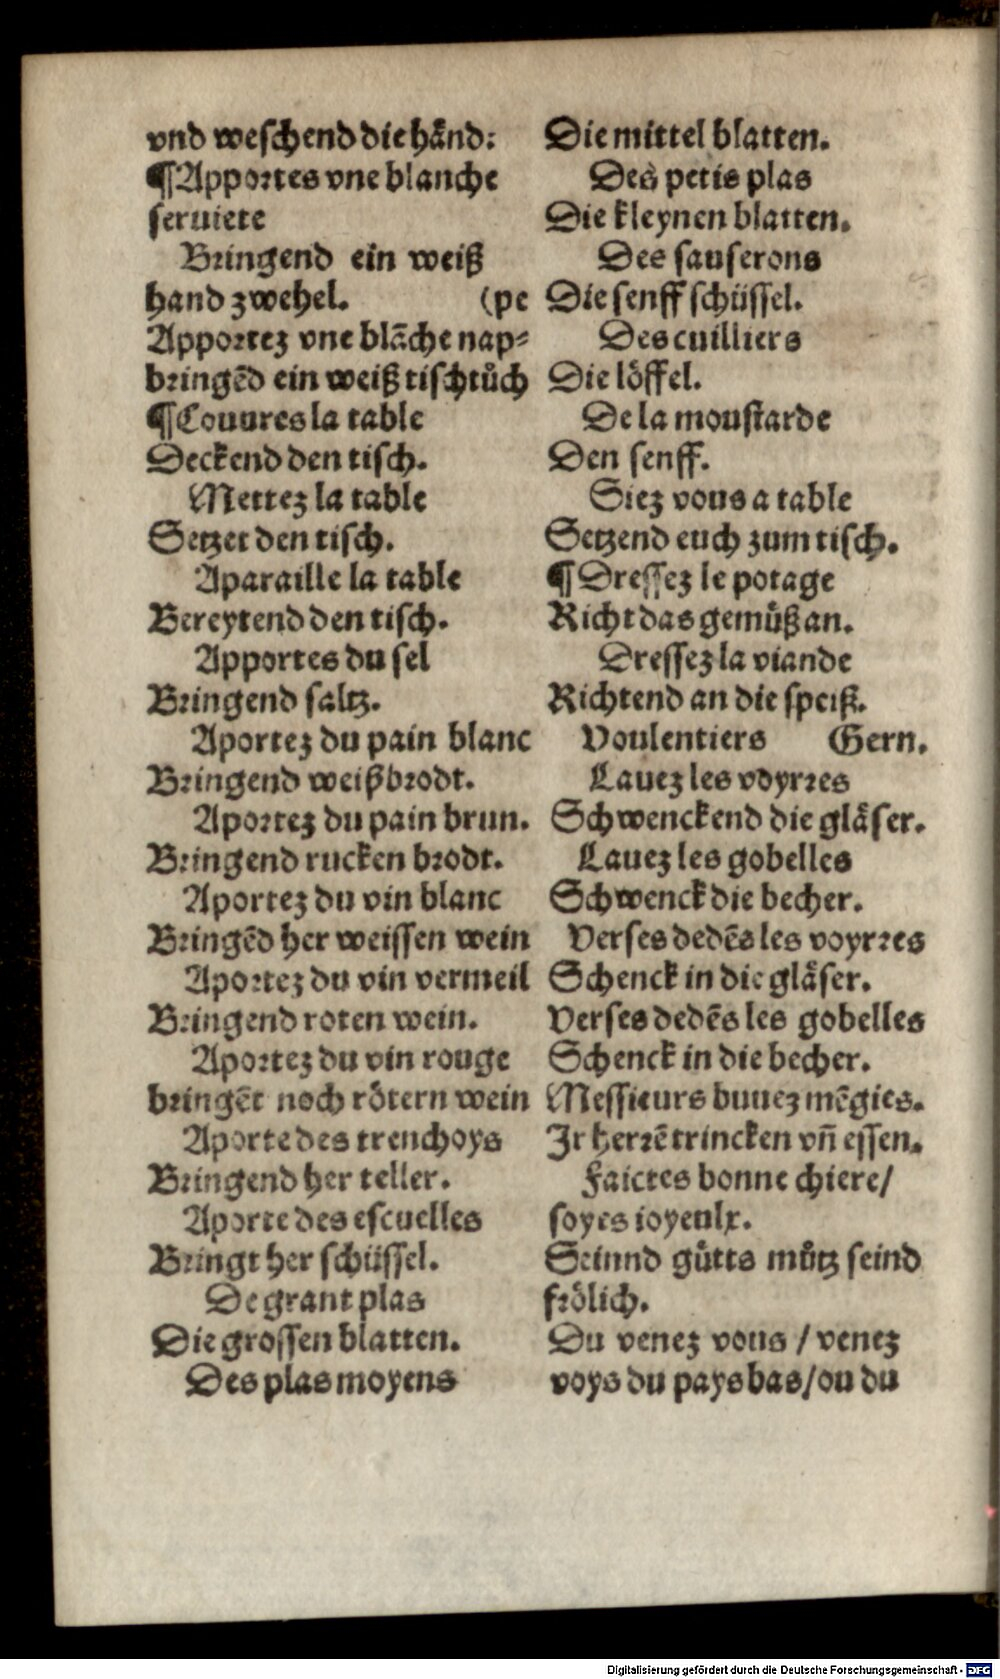 vnd weschend die händ:
¶Apportes vne blanche
seruiete
Bringend ein weiß
hand zwehel. (pe
Apportez vne blāche nap⸗
bringēd ein weiß tischtůch
¶Couures la table
Deckend den tisch.
Mettez la table
Setzet den tisch.
Aparaille la table
Bereytend den tisch.
Apportes du sel
Bringend saltz.
Aportez du pain blanc
Bringend weißbrodt.
Aportez du pain brun.
Bringend rucken brodt.
Aportez du vin blanc
Bringēd her weissen wein
Aportez du vin vermeil
Bringend roten wein.
Aportez du vin rouge
bringēt noch rötern wein
Aporte des trenchoys
Bringend her teller.
Aporte des escuelles
Bringt her schüssel.
De grant plas
Die grossen blatten.
Des plas moyens
Die mittel blatten.
Des petis plas
Die kleynen blatten.
Des sauserons
Die senff schüssel.
Des cuilliers
Die löffel.
De la moustarde
Den senff.
Siez vous a table
Setzend euch zum tisch.
¶Dressez le potage
Richt das gemůß an.
Dressez la viande
Richtend an die speiß.
Voulentiers Gern.
Lauez les voyrres
Schwenckend die gläser.
Lauez les gobelles
Schwenck die becher.
Verses dedēs les voyrres
Schenck in die gläser.
Verses dedēs les gobelles
Schenck in die becher.
Messieurs buuez mēgies.
Jr herrē trincken vn̄ essen.
Faictes bonne chiere/
soyes ioyeulx.
Seinnd gůtts můtz seind
frölich.
Du venez vous / venez
voys du pays bas/ou du
Digitalisierung gefördert durch die Deutsche Forschungsgemeinschaft - DFG